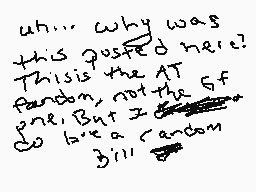 uh... why was
this posted here?
Thisis the AT
fandom, not the Gf
one. But I
do have a random
Bill